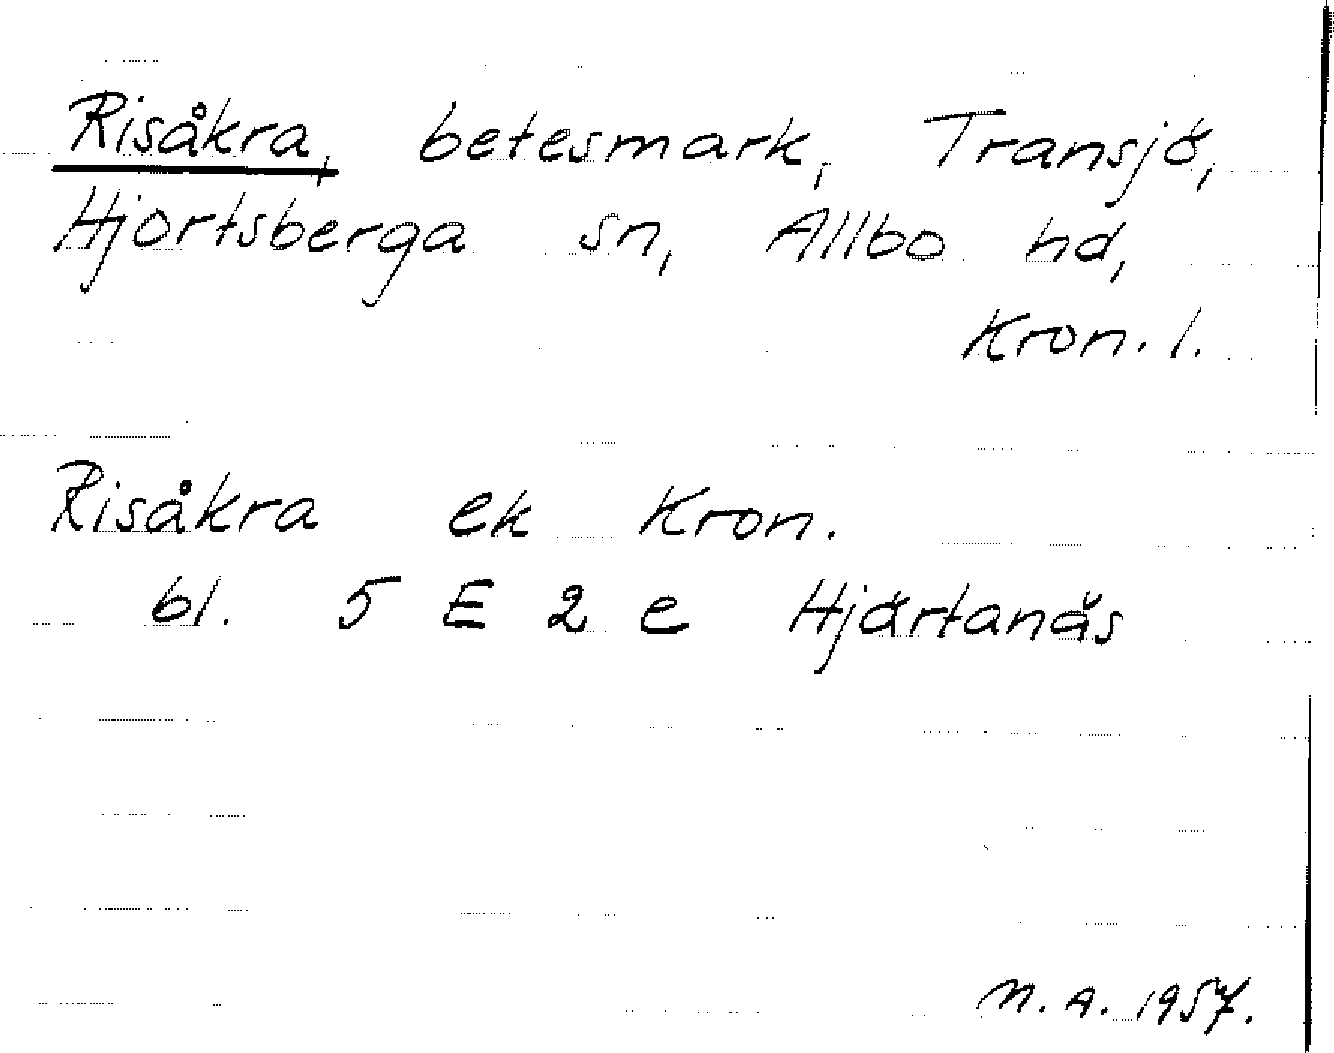 Risåkra, betesmark, Transjö,
Hjortsberga sn, Allbo hd,
Kron. l.
Risåkra ek Kron.
bl. 5 E 2 e Hjärtanäs
M. A. 1957.